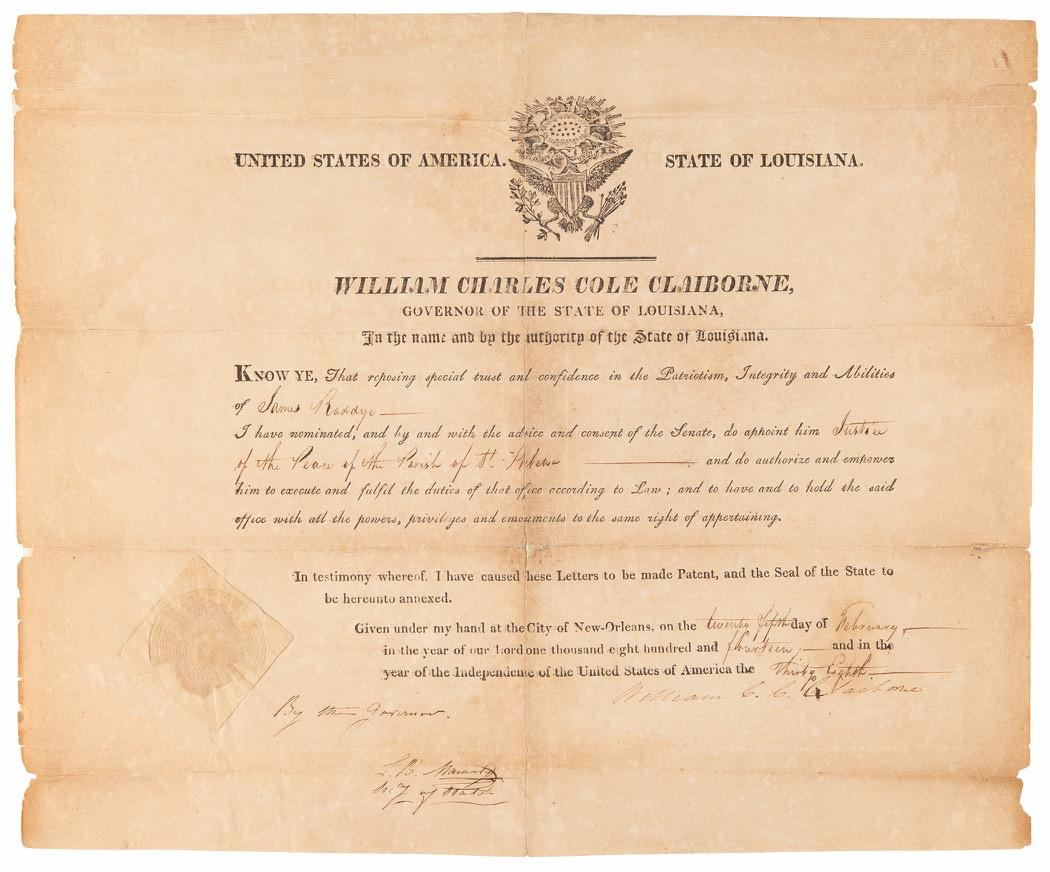 UNITED STATES OF AMERICA. STATE OF LOUISIANA.
WILLIAM CHARLES COLE CLAIBORNE,
GOVERNOR OF THE STATE OF LOUISIANA,
In the name and by the authority of the State of Louisiana.
KNOW YE, That reposing special trust and confidence in the Patriotism, Integrity and Abilities
of James
I have nominated, and by and with the advice and consent of the Senate, do appoint him Justice
of the Peace of the Parish of St. Helena and do authorize and empower
him to execute and fulfil the duties of that office according to Law; and to have and to hold the said
office with all the powers, privileges and emouments to the same right of appertaining.
In testimony whereof. I have caused hese Letters to be made Patent, and the Seal of the State to
be hereunto annexed.
Given under my hand at the City of New-Orleans, on the twenty fifth day of February,
in the year of our Lord one thousand eight hundred and fourteen, and in the
year of the Independence of the United States of America the Thirty Eighth
William C. C. Claiborne
By the Governor.
L. B. Macarty
Secy of State